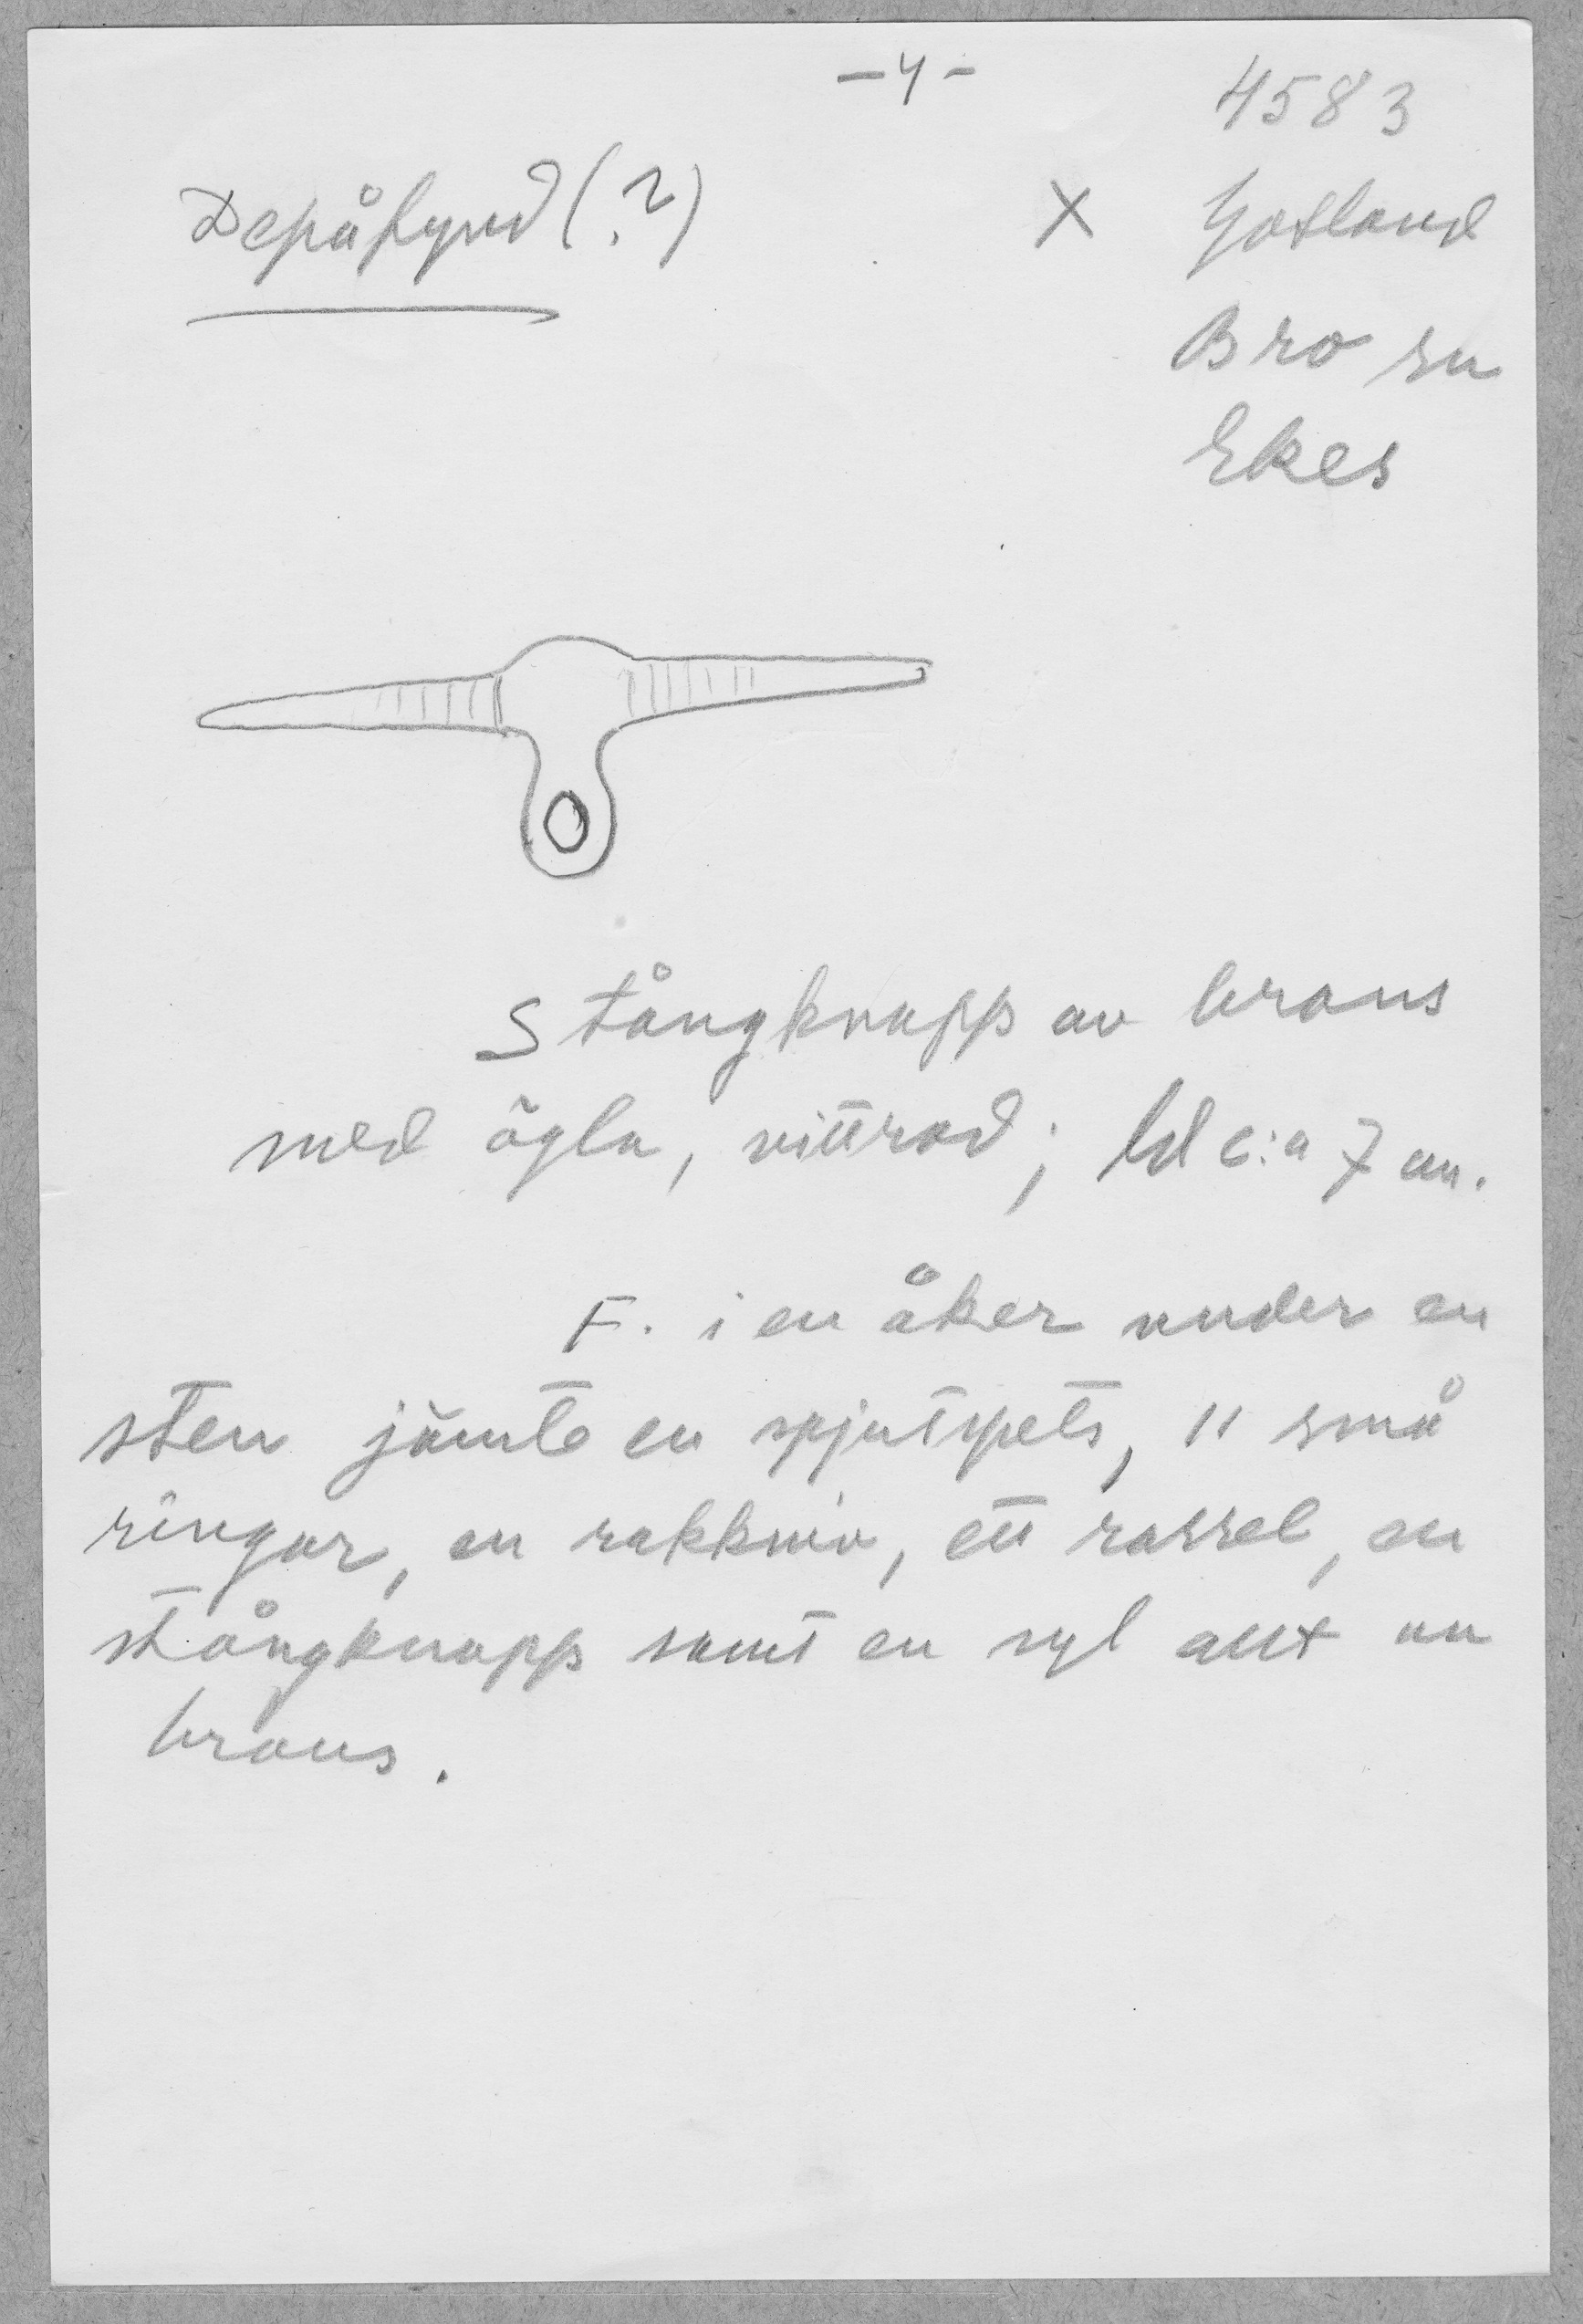 -4-
4583
Depåfynd (?)
X Gotland
Bro sn
Ekes
Stångknapp av brons
med ögla, vittrad; ld c:a 7 cm.
F. i en åker under en
sten jämte en spjutspets, 11 små
ringar, en rakkniv, ett rassel, en
stångknapp samt en syl allt av
brons.